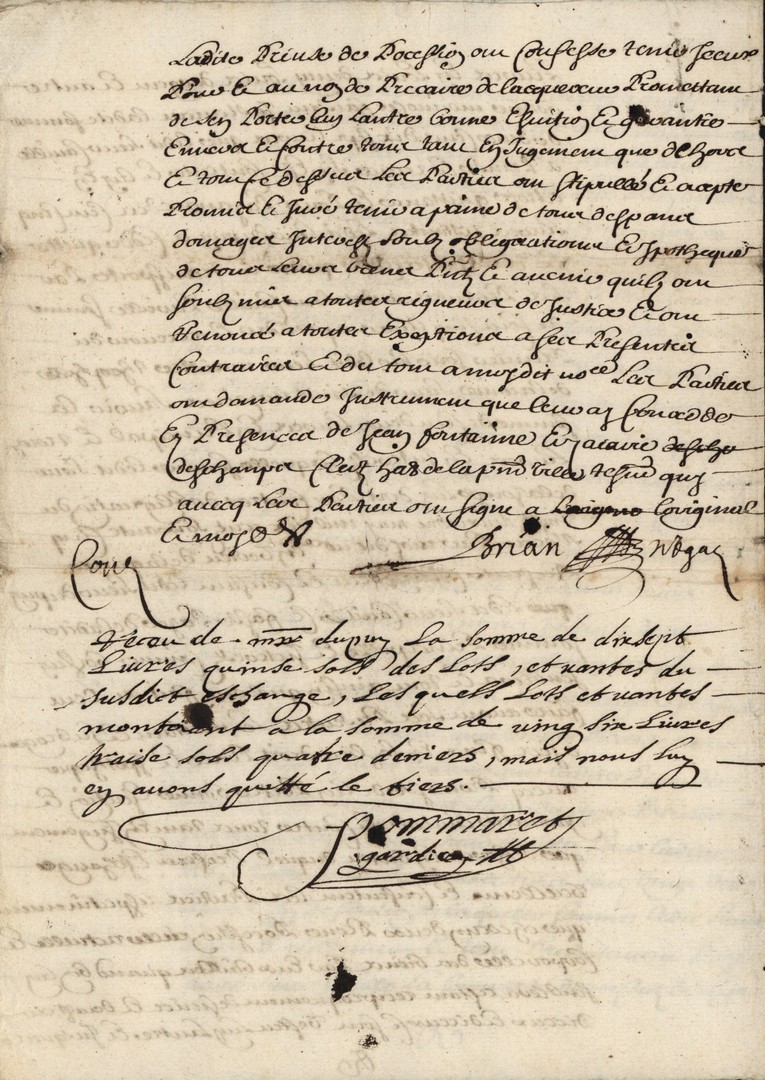 Ladite Prinse de Pocession ont Confesse tenir Iceux
Pour Et au nom de Precaire de lacquereur Promettant
de sen Porter lun Lautre bonne Esvition Et garantie
Envers Et Contre tous tant En Jugement que dehors
Et tout Ce dessus Les Parties ont stipullé Et acepté
Promis Et Juré tenir a paine de tous despans
domages Interestz soubz obligations Et hypotheques
de tous leurs biens Pntz Et avenir quilz ont
soubzmis a toutes rigueurs de Justice Et ont
renoncé a toutes Exeptions a ses Presentes
Contraires Et du tout a moydit no.re Les Parties
ont demandé Instrument que leur ay Concedde
En Presences de Jean fontainne Et
deschamps Clerz hab de la pnt ville tesm quy
avecq Les Parties ont signe a Loriginal
Et moy
Brian
receu de mr dupuy La somme de dixsept
Livres quinse sols des Lots, et vantes du
susdict eschange, Les quells Lots et vantes
montoient a la somme de ving six Livres
traise sols quatre deniers, mais nous luy
en avons quitté le tiers.
Pommaret
gardien